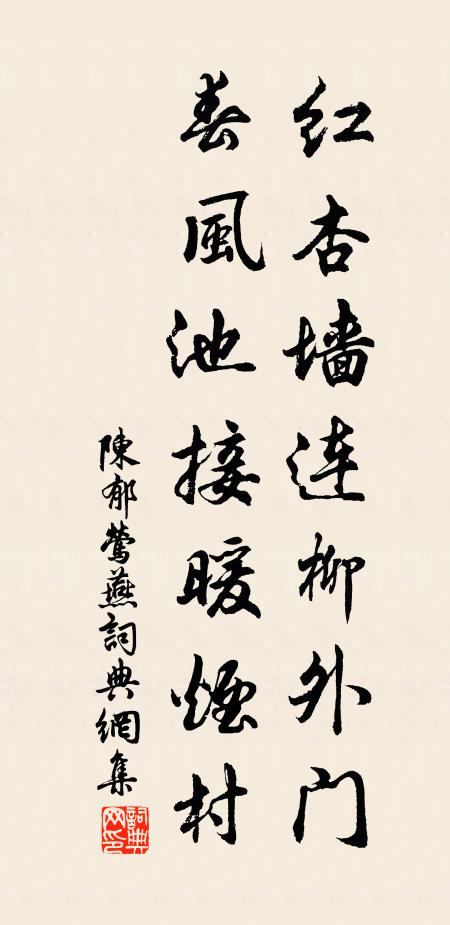 红杏墙连柳外门
春風池接暖煙村
陳郁鶯燕詞典網集
詞典网印